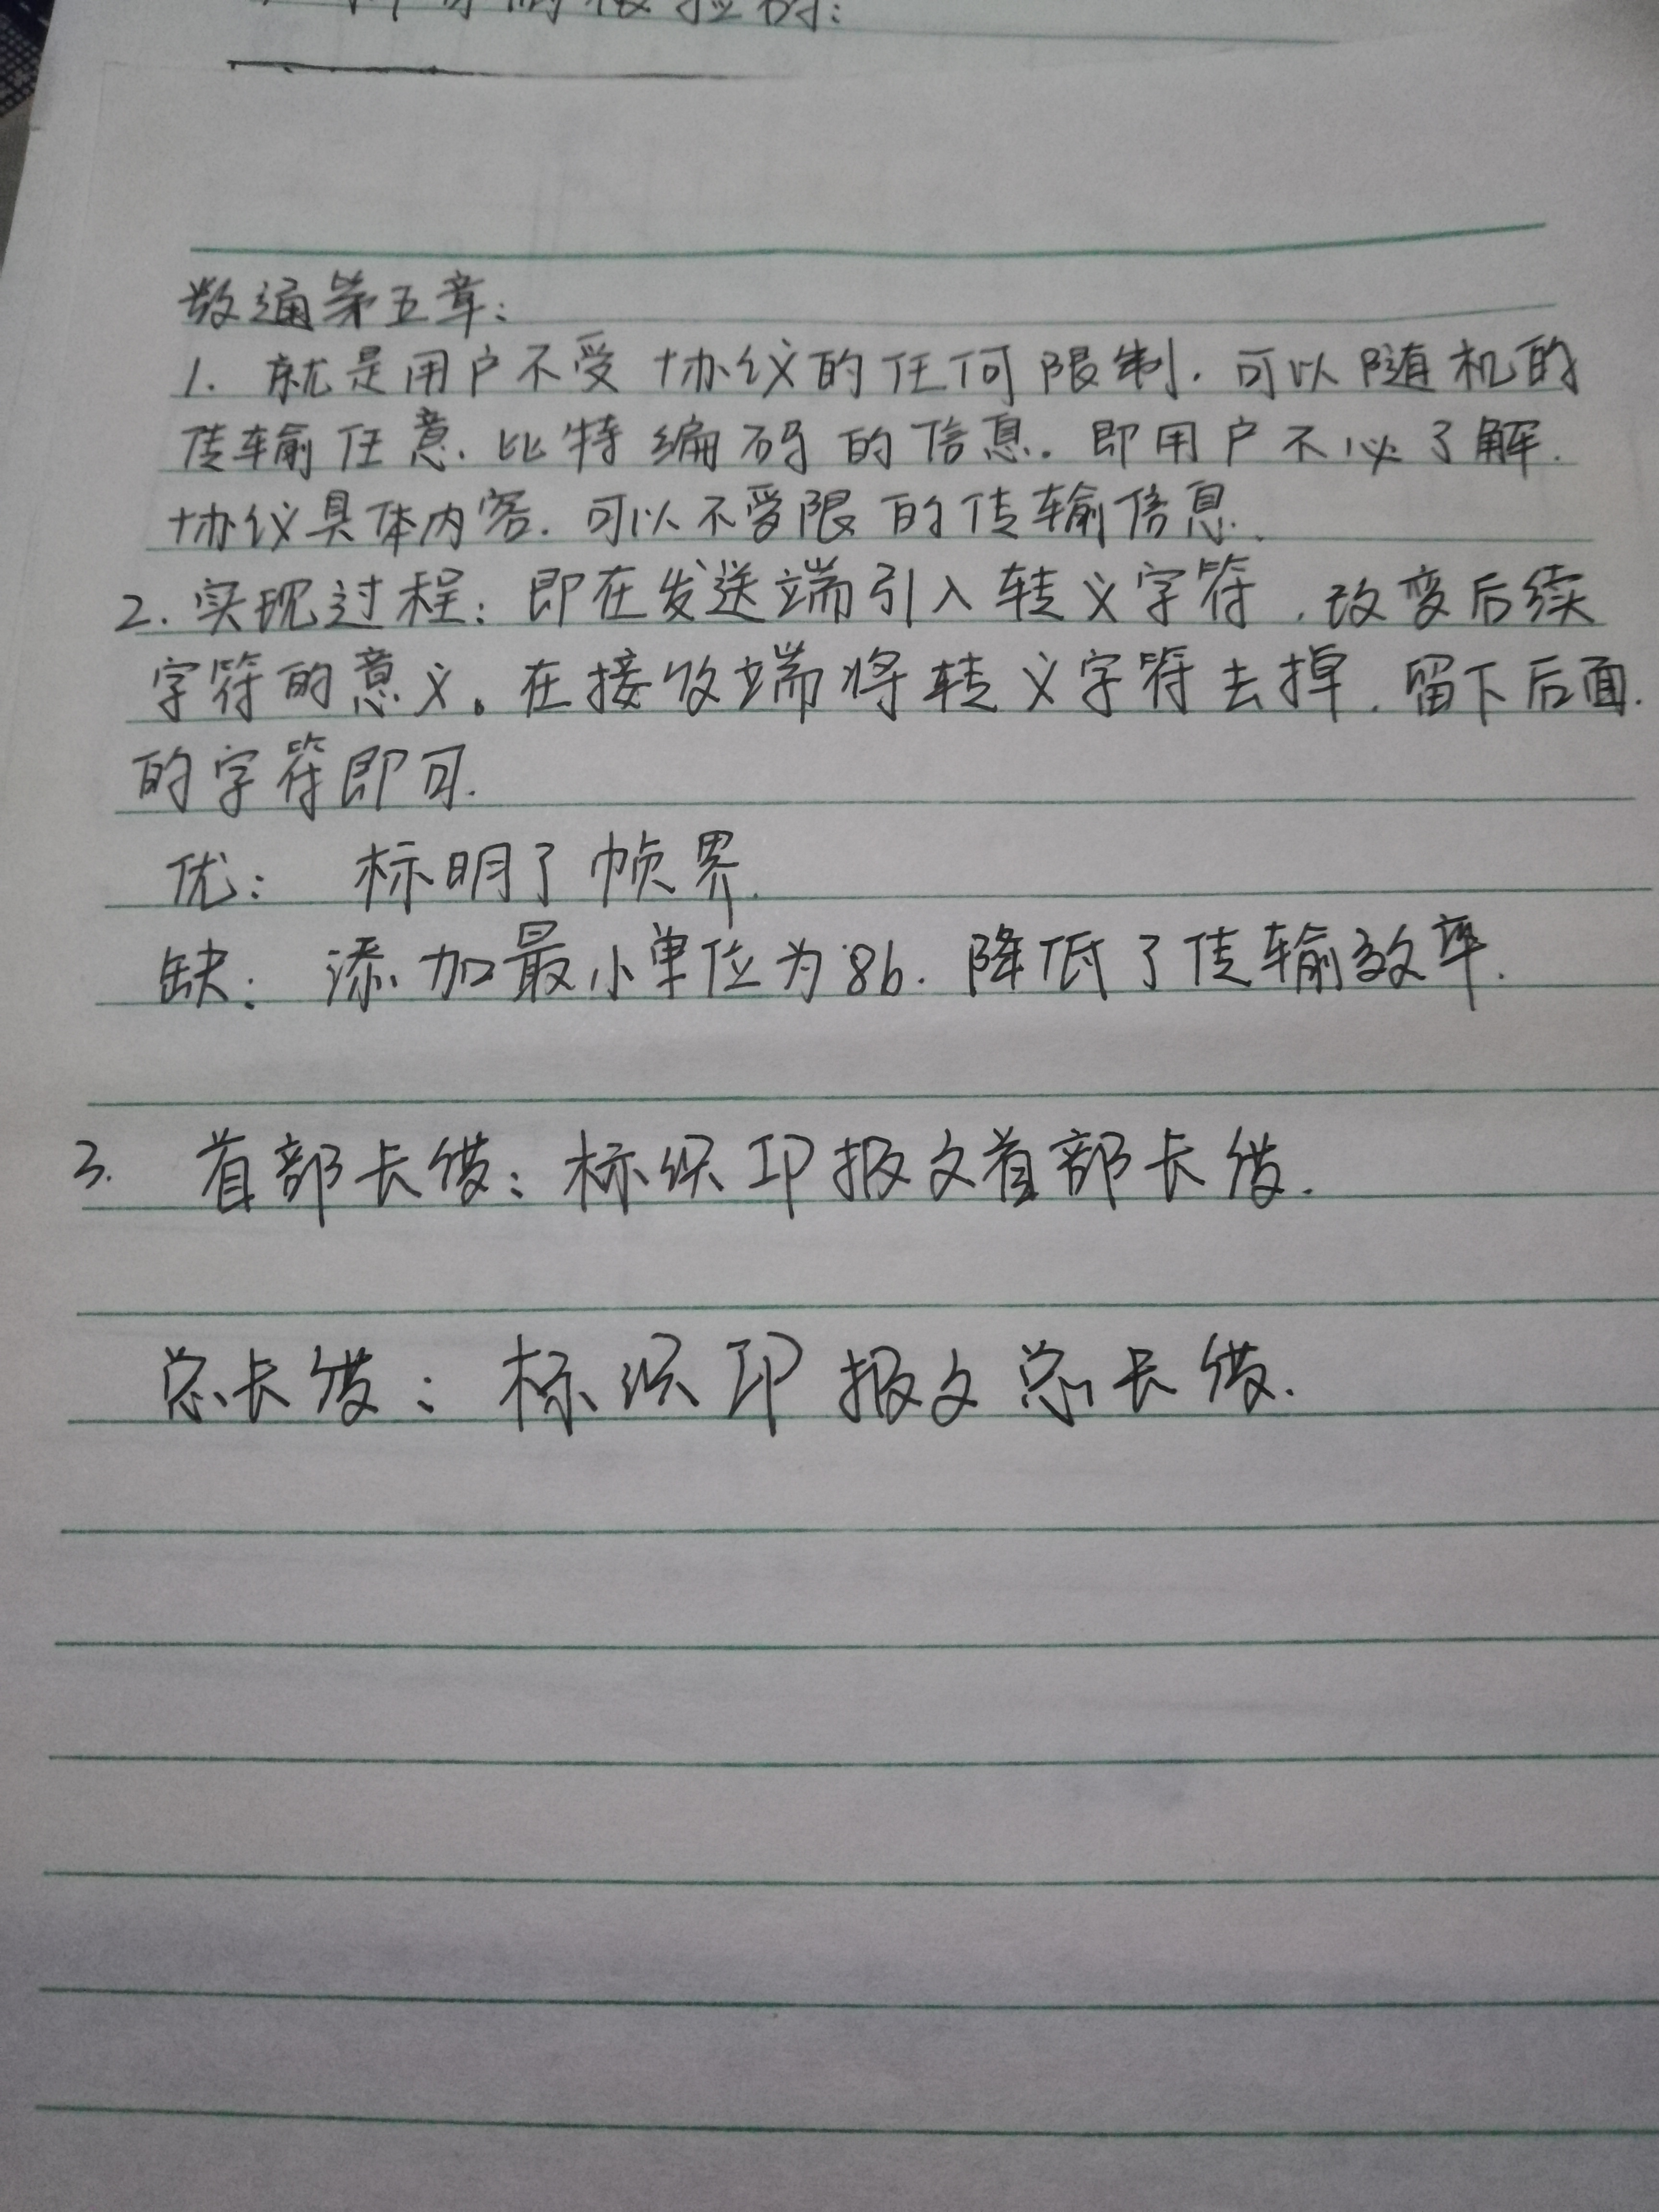 数通第五章:
1. 就是用户不受协议的任何限制.可以随机的
传输任意.比特编码的信息.即用户不必了解.
协议具体内容.可以不受限的传输信息.
2.实现过程:即在发送端引入转义字符.改变后续
字符的意义。在接收端将转义字符去掉.留下后面.
的字符即可.
优: 标明了帧界.
缺: 添加最小单位为8b.降低了传输效率.
3. 首部长度:标识IP报文首部长度.
总长度:标识IP报文总长度.